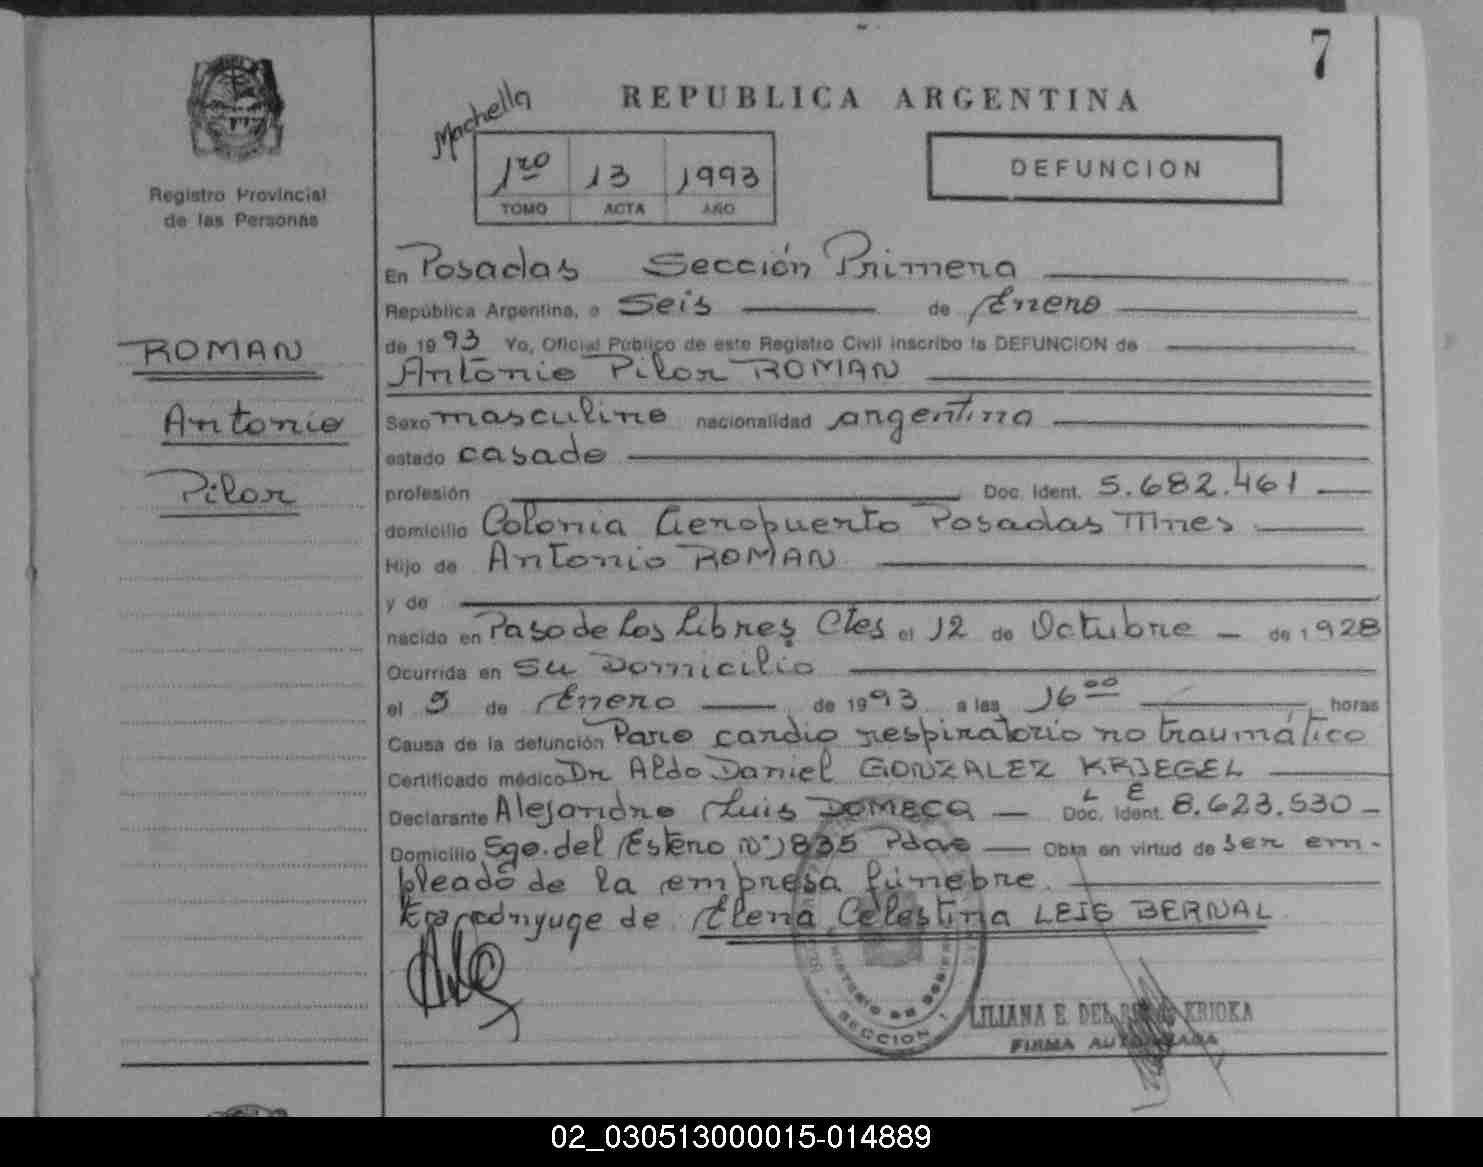 7
REPUBLICA ARGENTINA
Machella
1ro 13 1993
TOMO ACTA AÑO
DEFUNCION
Registro Provincial
de las Personas
ROMAN
Antonio
Pilar
En Posadas Sección Primera
República Argentina, a Seis de Enero
de 1993 Yo, Oficial Público de este Registro Civil inscribo la DEFUNCION de
Antonio Pilar ROMAN
Sexo masculino nacionalidad argentina
estado casado
profesión Doc. Ident. 5.682.461
domicilio Colonia Aeropuerto Posadas Mnes
Hijo de Antonio ROMAN
y de
nacido en Paso de Los Libres Ctes el 12 de Octubre de 1928
Ocurrida en su Domicilio
el 5 de Enero de 1993 a las 16 00 horas
Causa de la defunción Paro cardio respiratorio no traumático
Certificado médico Dr Aldo Daniel GONZALEZ KRIEGEL
Declarante Alejandro Luis DOMECQ L E Doc. Ident. 8.623.530
Domicilio Sgo. del Estero Nº 1835 Pdas Obra en virtud de ser em-
pleado de la empresa fúnebre.
Era cónyuge de Elena Celestina LEIS BERNAL
MINISTERIO DE GOBIERNO
SECCION 1
LILIANA E. DEL KRIOKA
FIRMA AUTORIZADA
02_030513000015-014889